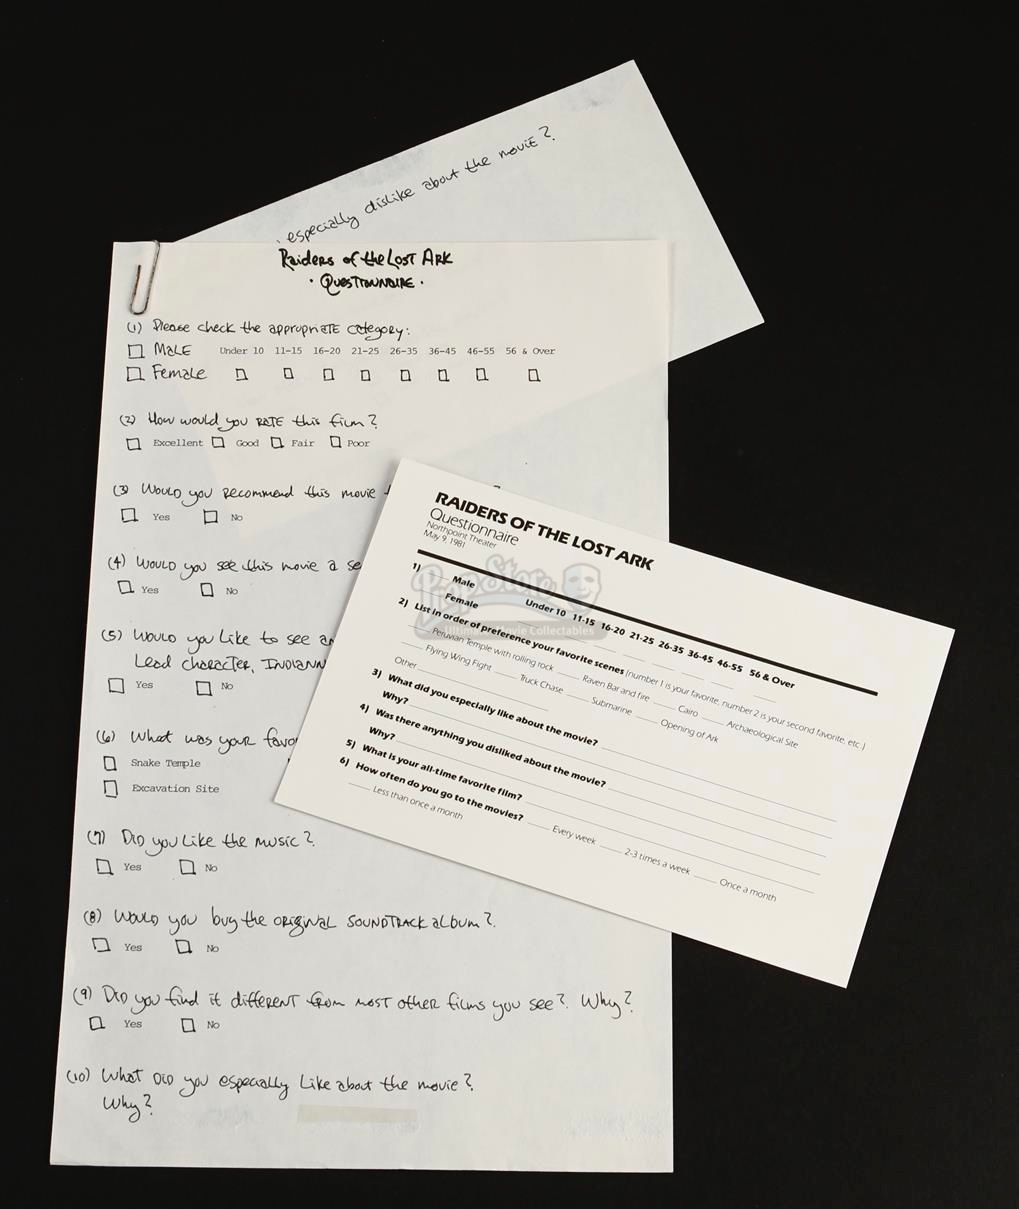 especially dislike about the movie?
Raiders of the Lost Ark
· Questionnaire ·
(1) Please check the appropriate category:
Male Under 10 11-15 16-20 21-25 26-35 36-45 46-55 56 & Over
Female
(2) How would you rate this film?
Excellent Good Fair Poor
(3) Would you recommend this movie
Yes No
(4) Would you see this movie a se
Yes No
(5) Would you like to see an
Lead character, Indiann
Yes No
(6) What was your favor
Snake Temple
Excavation Site
(7) Did you like the music?
Yes No
(8) Would you buy the original soundtrack album?
Yes No
(9) Did you find it different from most other films you see? Why?
Yes No
(10) What did you especially like about the movie?
Why?
RAIDERS OF THE LOST ARK
Questionnaire
Northpoint Theater
May 9, 1981
1) ____ Male
____ Female Under 10 11-15 16-20 21-25 26-35 36-45 46-55 56 & Over
2) List in order of preference your favorite scenes (number 1 is your favorite, number 2 is your second favorite, etc.)
____ Peruvian Temple with rolling rock ____ Raven Bar and fire ____ Cairo ____ Archaeological Site
____ Flying Wing Fight ____ Truck Chase ____ Submarine ____ Opening of Ark
Other
3) What did you especially like about the movie?
Why?
4) Was there anything you disliked about the movie?
Why?
5) What is your all-time favorite film?
6) How often do you go to the movies? ____ Every week ____ 2-3 times a week ____ Once a month
____ Less than once a month
Prop Store
Ultimate Movie Collectables